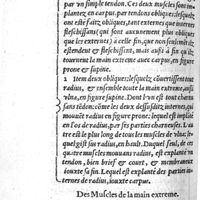 par vn simple tendon. Ces deux muscles sont im-
plantez en carpus par tendons obliques: lesquelz
ont esté faitz obliques, tant en ceux qui internes
fleschissans (qui sont aucunement plus obliques
que les externes) à celle fin, que non seulement ilz
estendent & fleschissent, mais aussi à fin qu'ilz
tournent la main extreme auec carpus, en figure
prone & supine.
2 Item deux obliques: lesquelz couertissent tout
radius, & ensemble toute la main extreme, aussi
en figure supine. Dont l'vn est tout charnu
sans tendon: côme les deux dessusditz internes, qui
mouuoit radius en figure prone: lequel est obli-
que, & plat ioint par ses parties charneuses. L'au-
tre est le plus long de tous les muscles de vlna; le-
quel gist sur radius, en haut. Duquel seul, de ces
quatre muscles mouuans radius, est produit vn
tendon, bien brief & court, & membraneux
iouxte sa fin. Lequel est explanté des parties in-
ternes de radius, iouxte carpus.
Des Muscles de la main extreme.